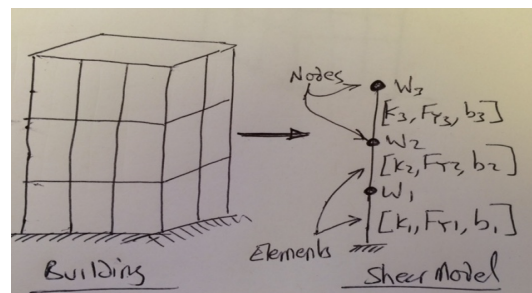 Nodes
W3
[K3, Fy3, b3]
W2
[K2, Fy2, b2]
W1
[K1, Fy1, b1]
Elements
Building
Shear Model